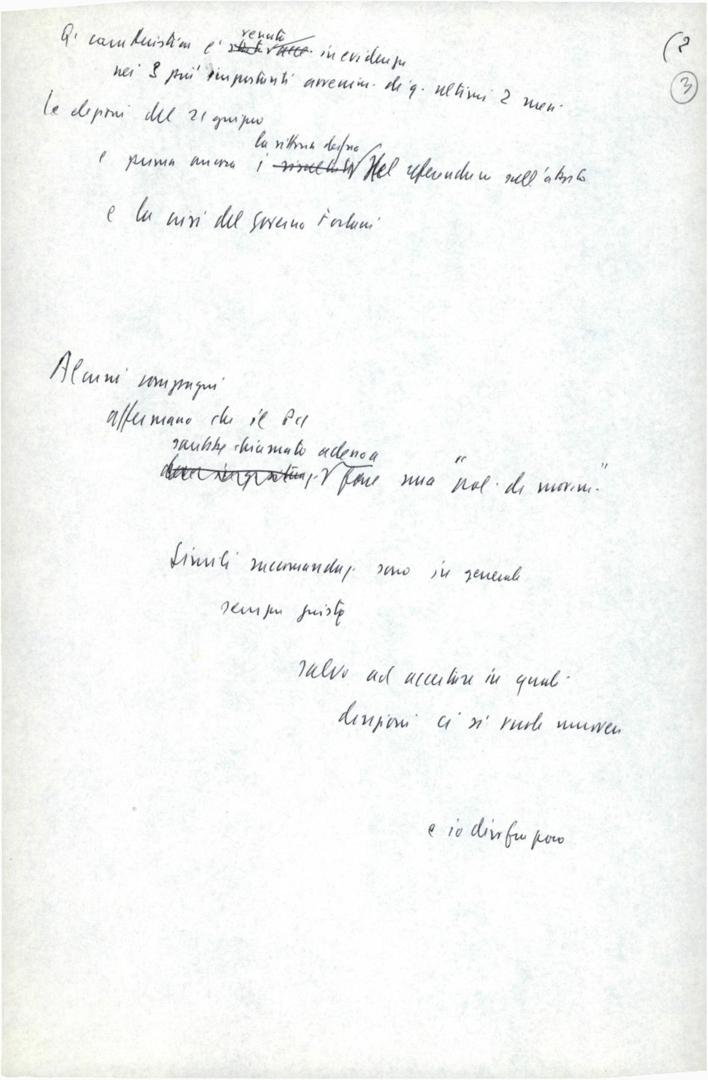 (8
3
Q. caratteristica è venuta in evidenza
nei 3 più importanti avvenim. di q. ultimi 2 mesi.
Le elezioni del 21 giugno
e prima ancora la vittoria del referendum sull'aborto
e la crisi del governo Forlani
Alcuni compagni
affermano che il Pci
sarebbe chiamato adesso a
fare una "pol. di movim."
Simili raccomandaz. sono in generale
sempre giuste
salvo ad accertare in quali
direzioni ci si vuole muovere
e io dirò fra poco